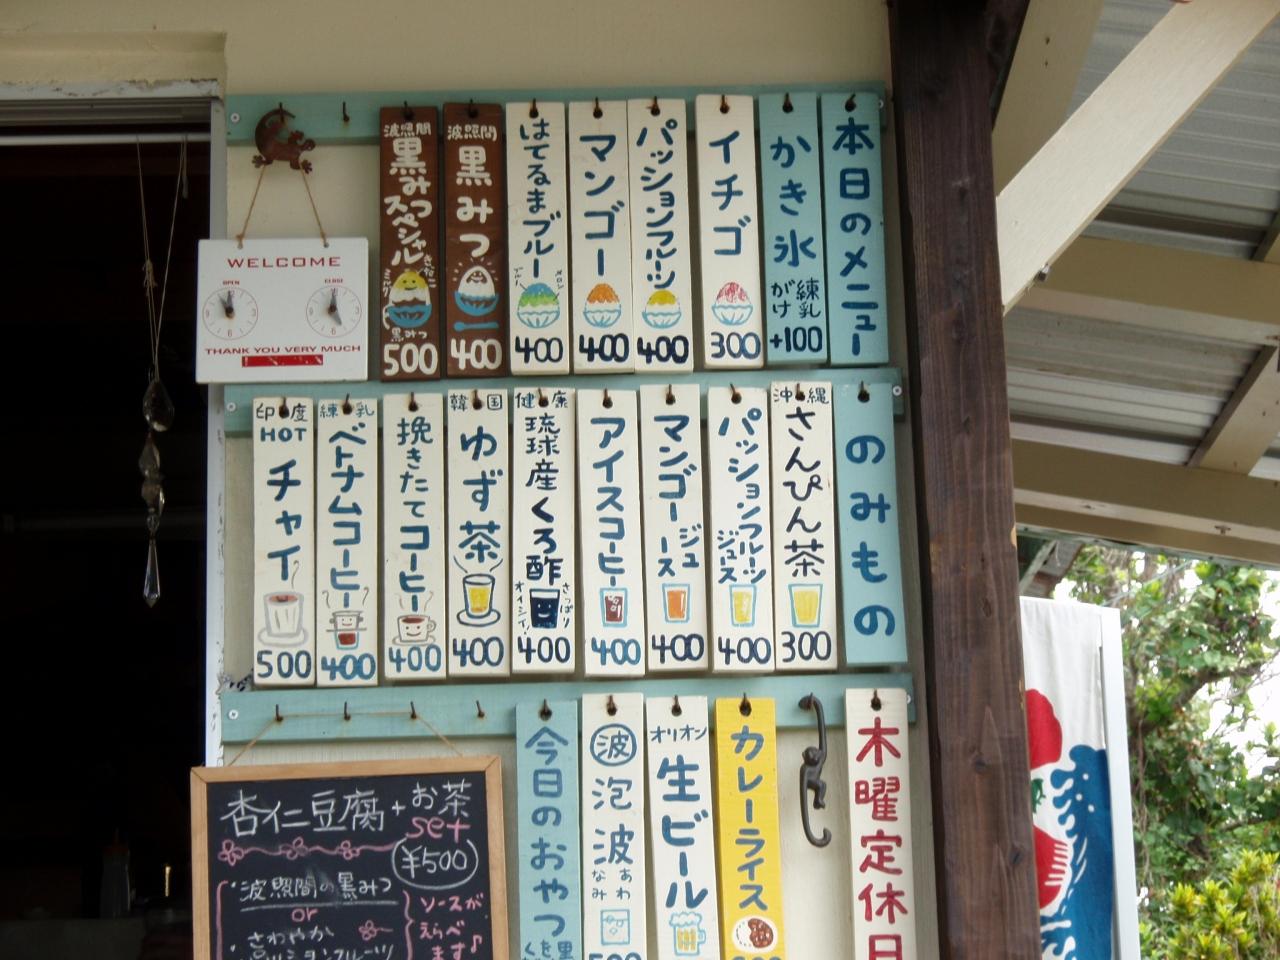 本日のメニュー
かき氷
練乳がけ
+100
イチゴ
300
パッションフルーツ
400
マンゴー
400
はてるまブルー
400
波照間
黒みつ
400
波照間
黒みつスペシャル
きなこ
黒みつ
500
WELCOME
OPEN
CLOSE
THANK YOU VERY MUCH
のみもの
沖縄
さんぴん茶
300
パッションフルーツジュース
400
マンゴージュース
400
アイスコーヒー
400
健康
琉球産くろ酢
さっぱり
オイシイ!
400
韓国
ゆず茶
400
挽きたてコーヒー
400
練乳
ベトナムコーヒー
400
印度
HOT
チャイ
500
木曜定休日
カレーライス
オリオン
生ビール
波
泡波
あわなみ
今日のおやつ
杏仁豆腐+お茶
set
¥500
波照間の黒みつ
or
さわやか
パッションフルーツ
ソースが
えらべ
ます♪